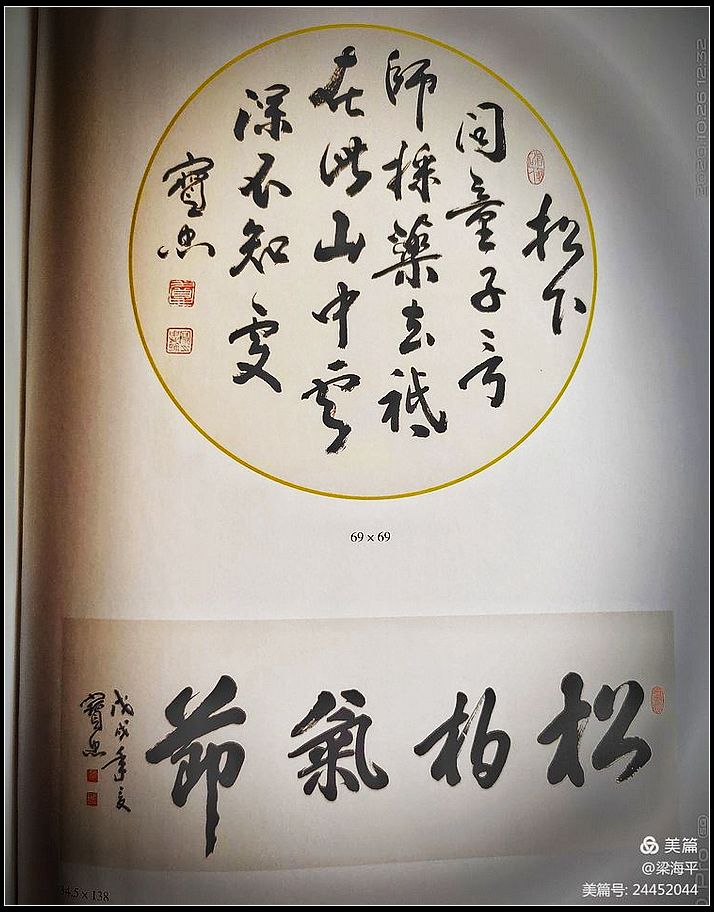 松下
问童子言
師採藥去祗
在此山中雲
深不知處
寶忠
69 x 69
松柏氣節
戊戌年夏
寶忠
34.5 x 138
2020.10.26 12:32
美篇
@梁海平
美篇号: 24452044